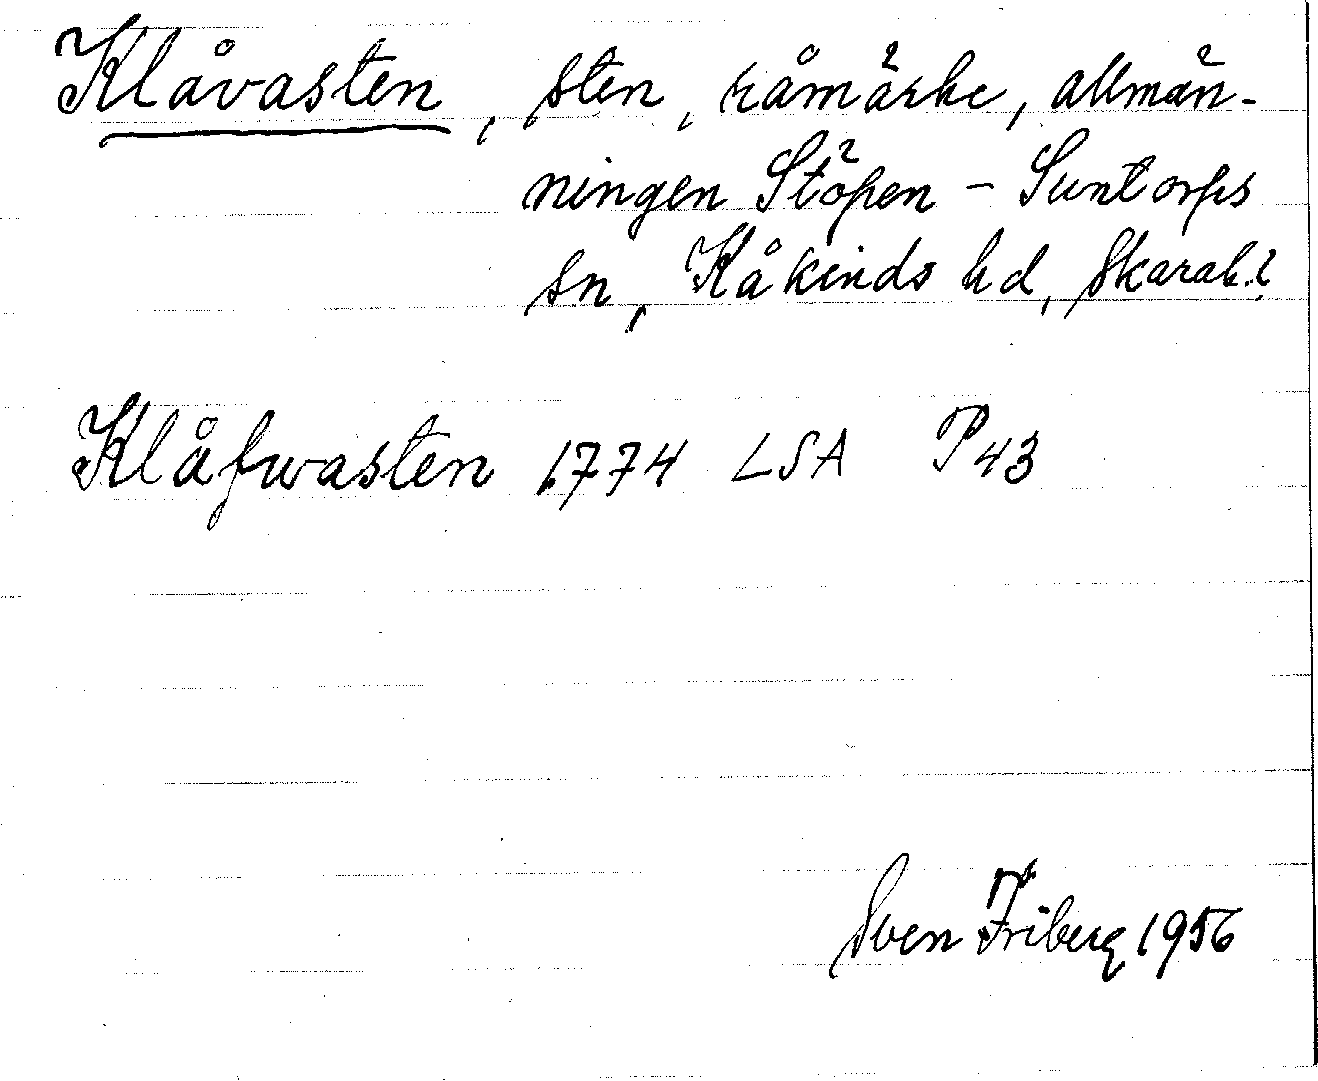 Klåvasten, sten, råmärke, allmän-
ningen Stöpen - Suntorps
sn, Kåkinds hd, Skarab. l
Klåfwasten 1774 LSA P43
Sven Friberg 1956